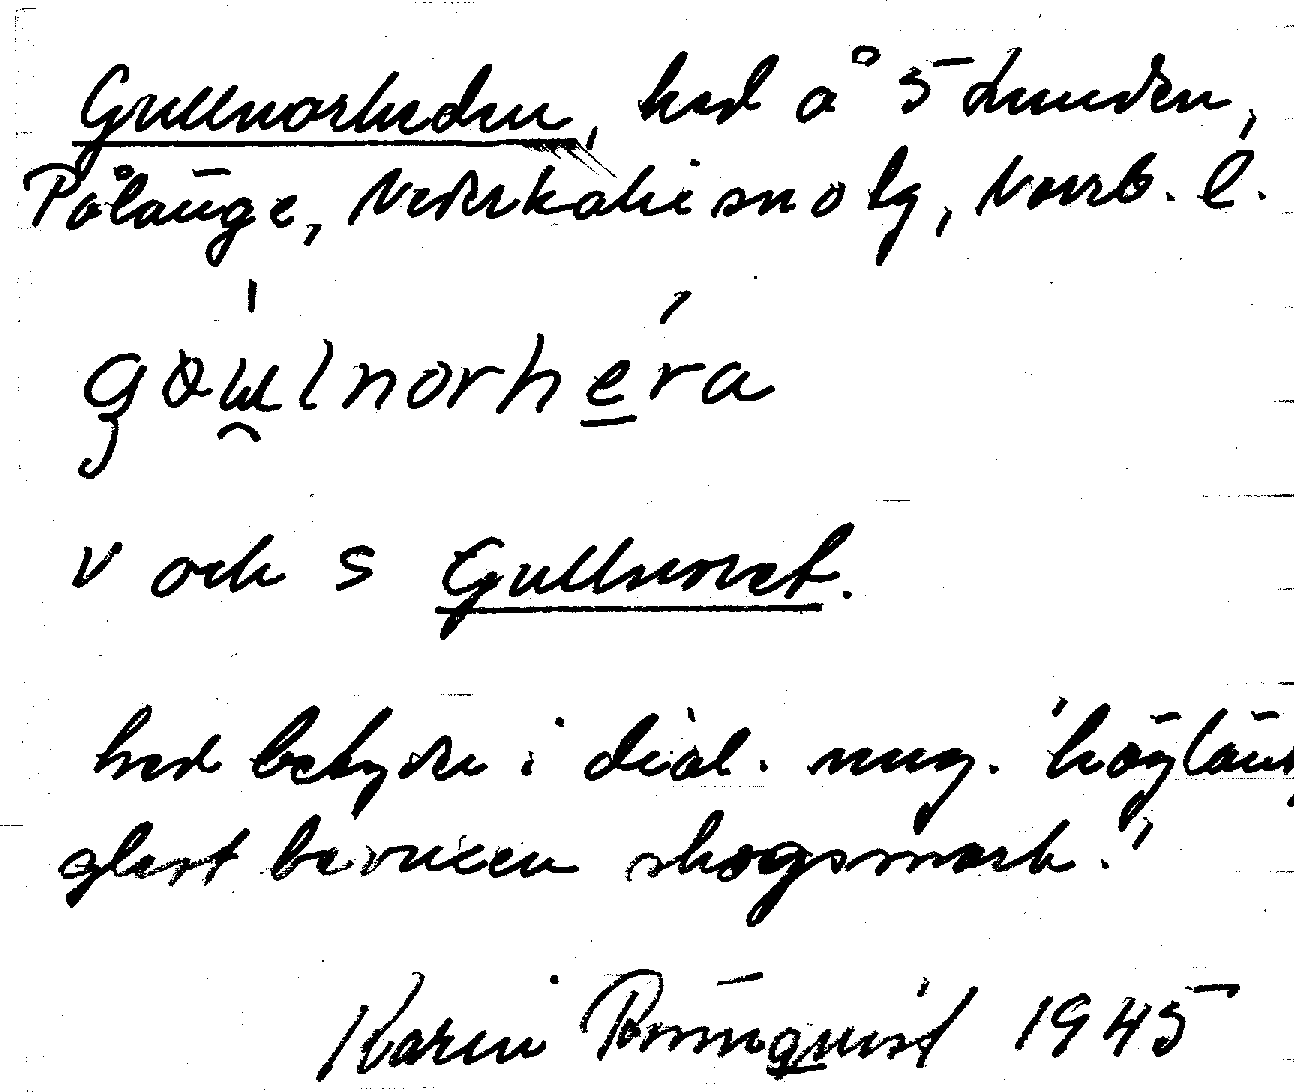 Gullnorheden, hed å 5 Lunden,
Pålänge, Nederkalix sn o lg, Norrb. l.
v och s Gullnoret.
hed betyder i dial. mng. 'högländ
glest bevuxen skogsmark.'
Karin Rönnqvist 1945